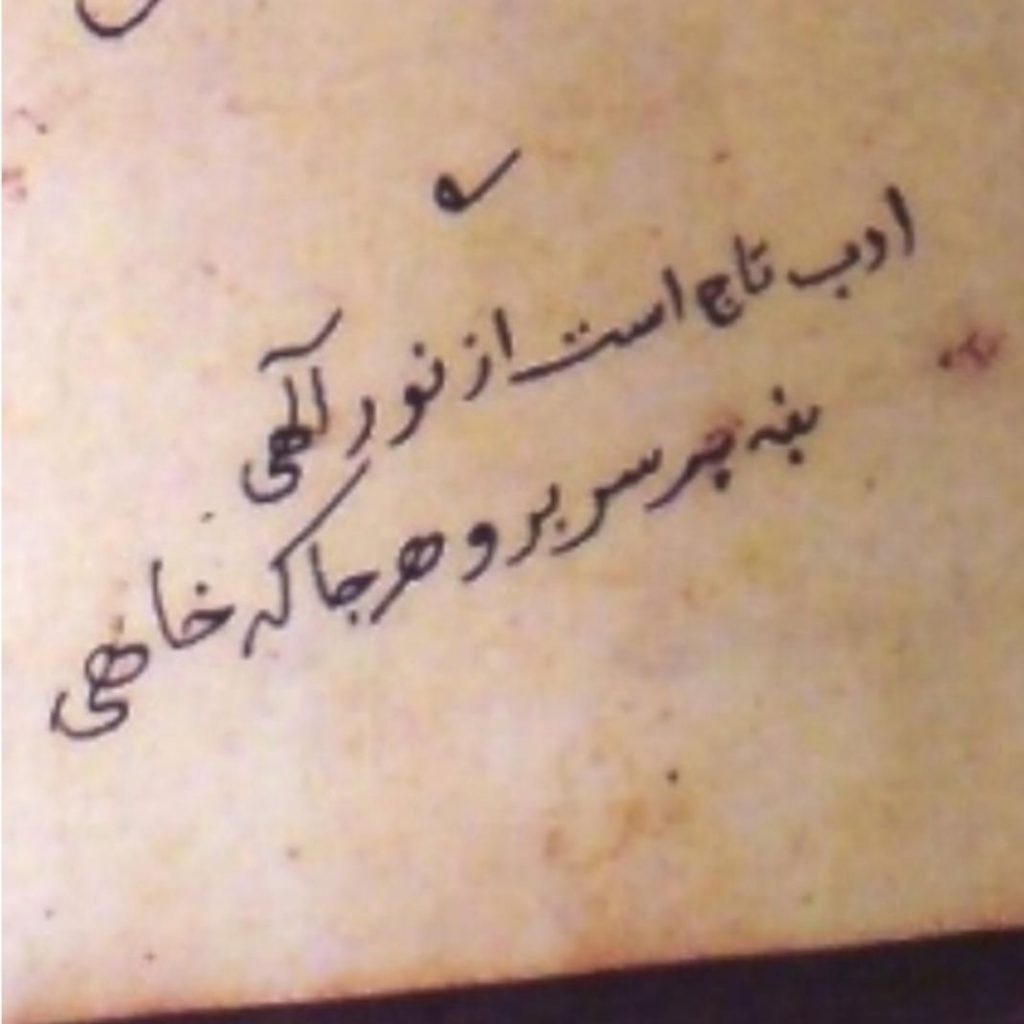 ادب تاج است از نور الٰهی
بنه بر سر برو هر جا که خاهی